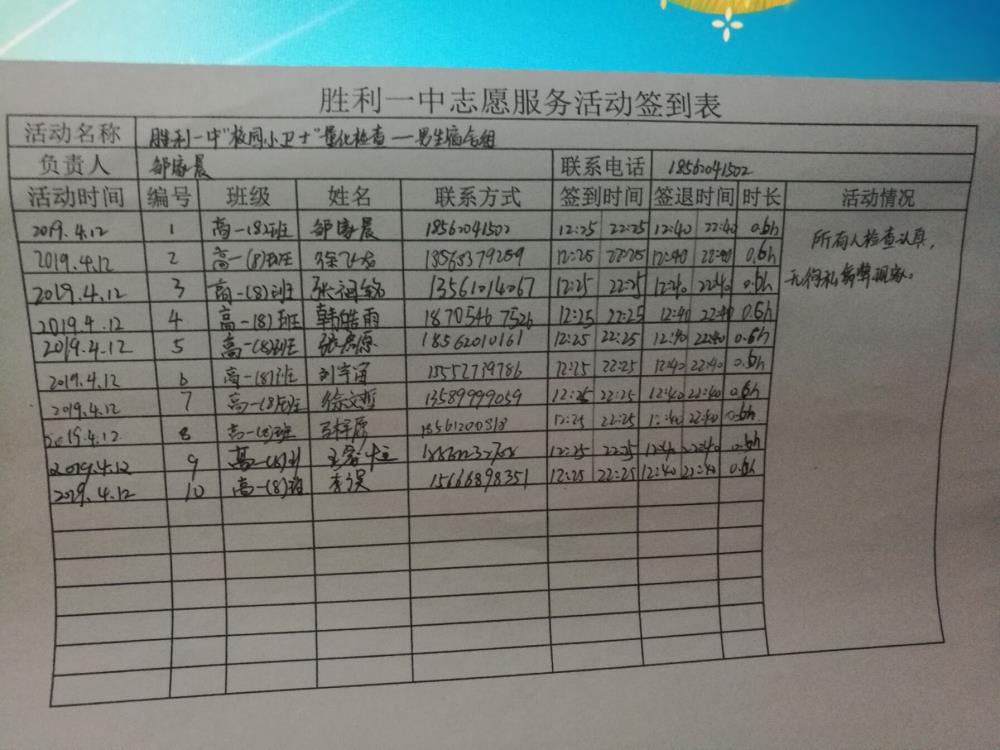 胜利一中志愿服务活动签到表
活动名称 胜利一中"校园小卫士"量化检查—男生宿舍组
负责人 邹家晨 联系电话 18562041502
活动时间 编号 班级 姓名 联系方式 签到时间 签退时间 时长 活动情况
2019.4.12 1 高一(8)班 邹家晨 18562041502 12:25 22:25 12:40 22:40 0.6h 所有人检查认真,
2019.4.12 2 高一(8)班 18565379259 12:25 22:25 12:40 22:40 0.6h 无徇私舞弊现象。
2019.4.12 3 高一(8)班 13561014067 12:25 22:25 12:40 22:40 0.6h
2019.4.12 4 高一(8)班 韩皓雨 18705467526 12:25 22:25 12:40 22:40 0.6h
2019.4.12 5 高一(8)班 18562010161 12:25 22:25 12:40 22:40 0.6h
2019.4.12 6 高一(8)班 刘宇宙 15552739786 12:25 22:25 12:40 22:40 0.6h
2019.4.12 7 高一(8)班 徐文哲 13589999059 12:25 22:25 12:40 22:40 0.6h
2019.4.12 8 高一(8)班 12:25 22:25 12:40 22:40 0.6h
2019.4.12 9 高一(8)班 12:25 22:25 12:40 22:40 0.6h
2019.4.12 10 高一(8)班 15666898351 12:25 22:25 12:40 22:40 0.6h